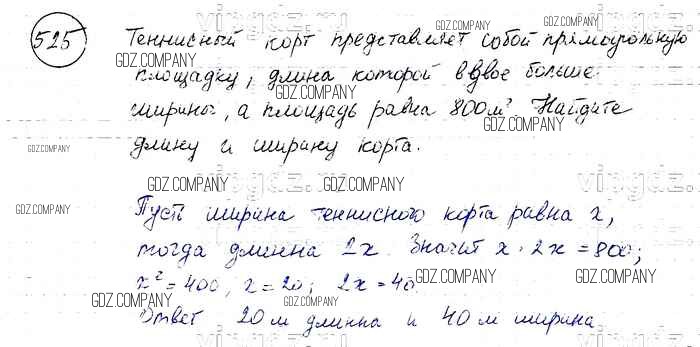 525 Теннисный корт представляет собой прямоугольную
площадку, длина которой вдвое больше
ширины, а площадь равна 800м² Найдите
длину и ширину корта.
Пусть ширина теннисного корта равна x,
тогда длинна 2x. Значит x · 2x = 800;
x² = 400, x = 20; 2x = 40.
Ответ 20 м длинна и 40 м ширина
GDZ.COMPANY
GDZ.COMPANY
GDZ.COMPANY
GDZ.COMPANY
GDZ.COMPANY
GDZ.COMPANY
GDZ.COMPANY
GDZ.COMPANY
GDZ.COMPANY
GDZ.COMPANY
GDZ.COMPANY
GDZ.COMPANY
GDZ.COMPANY
GDZ.COMPANY